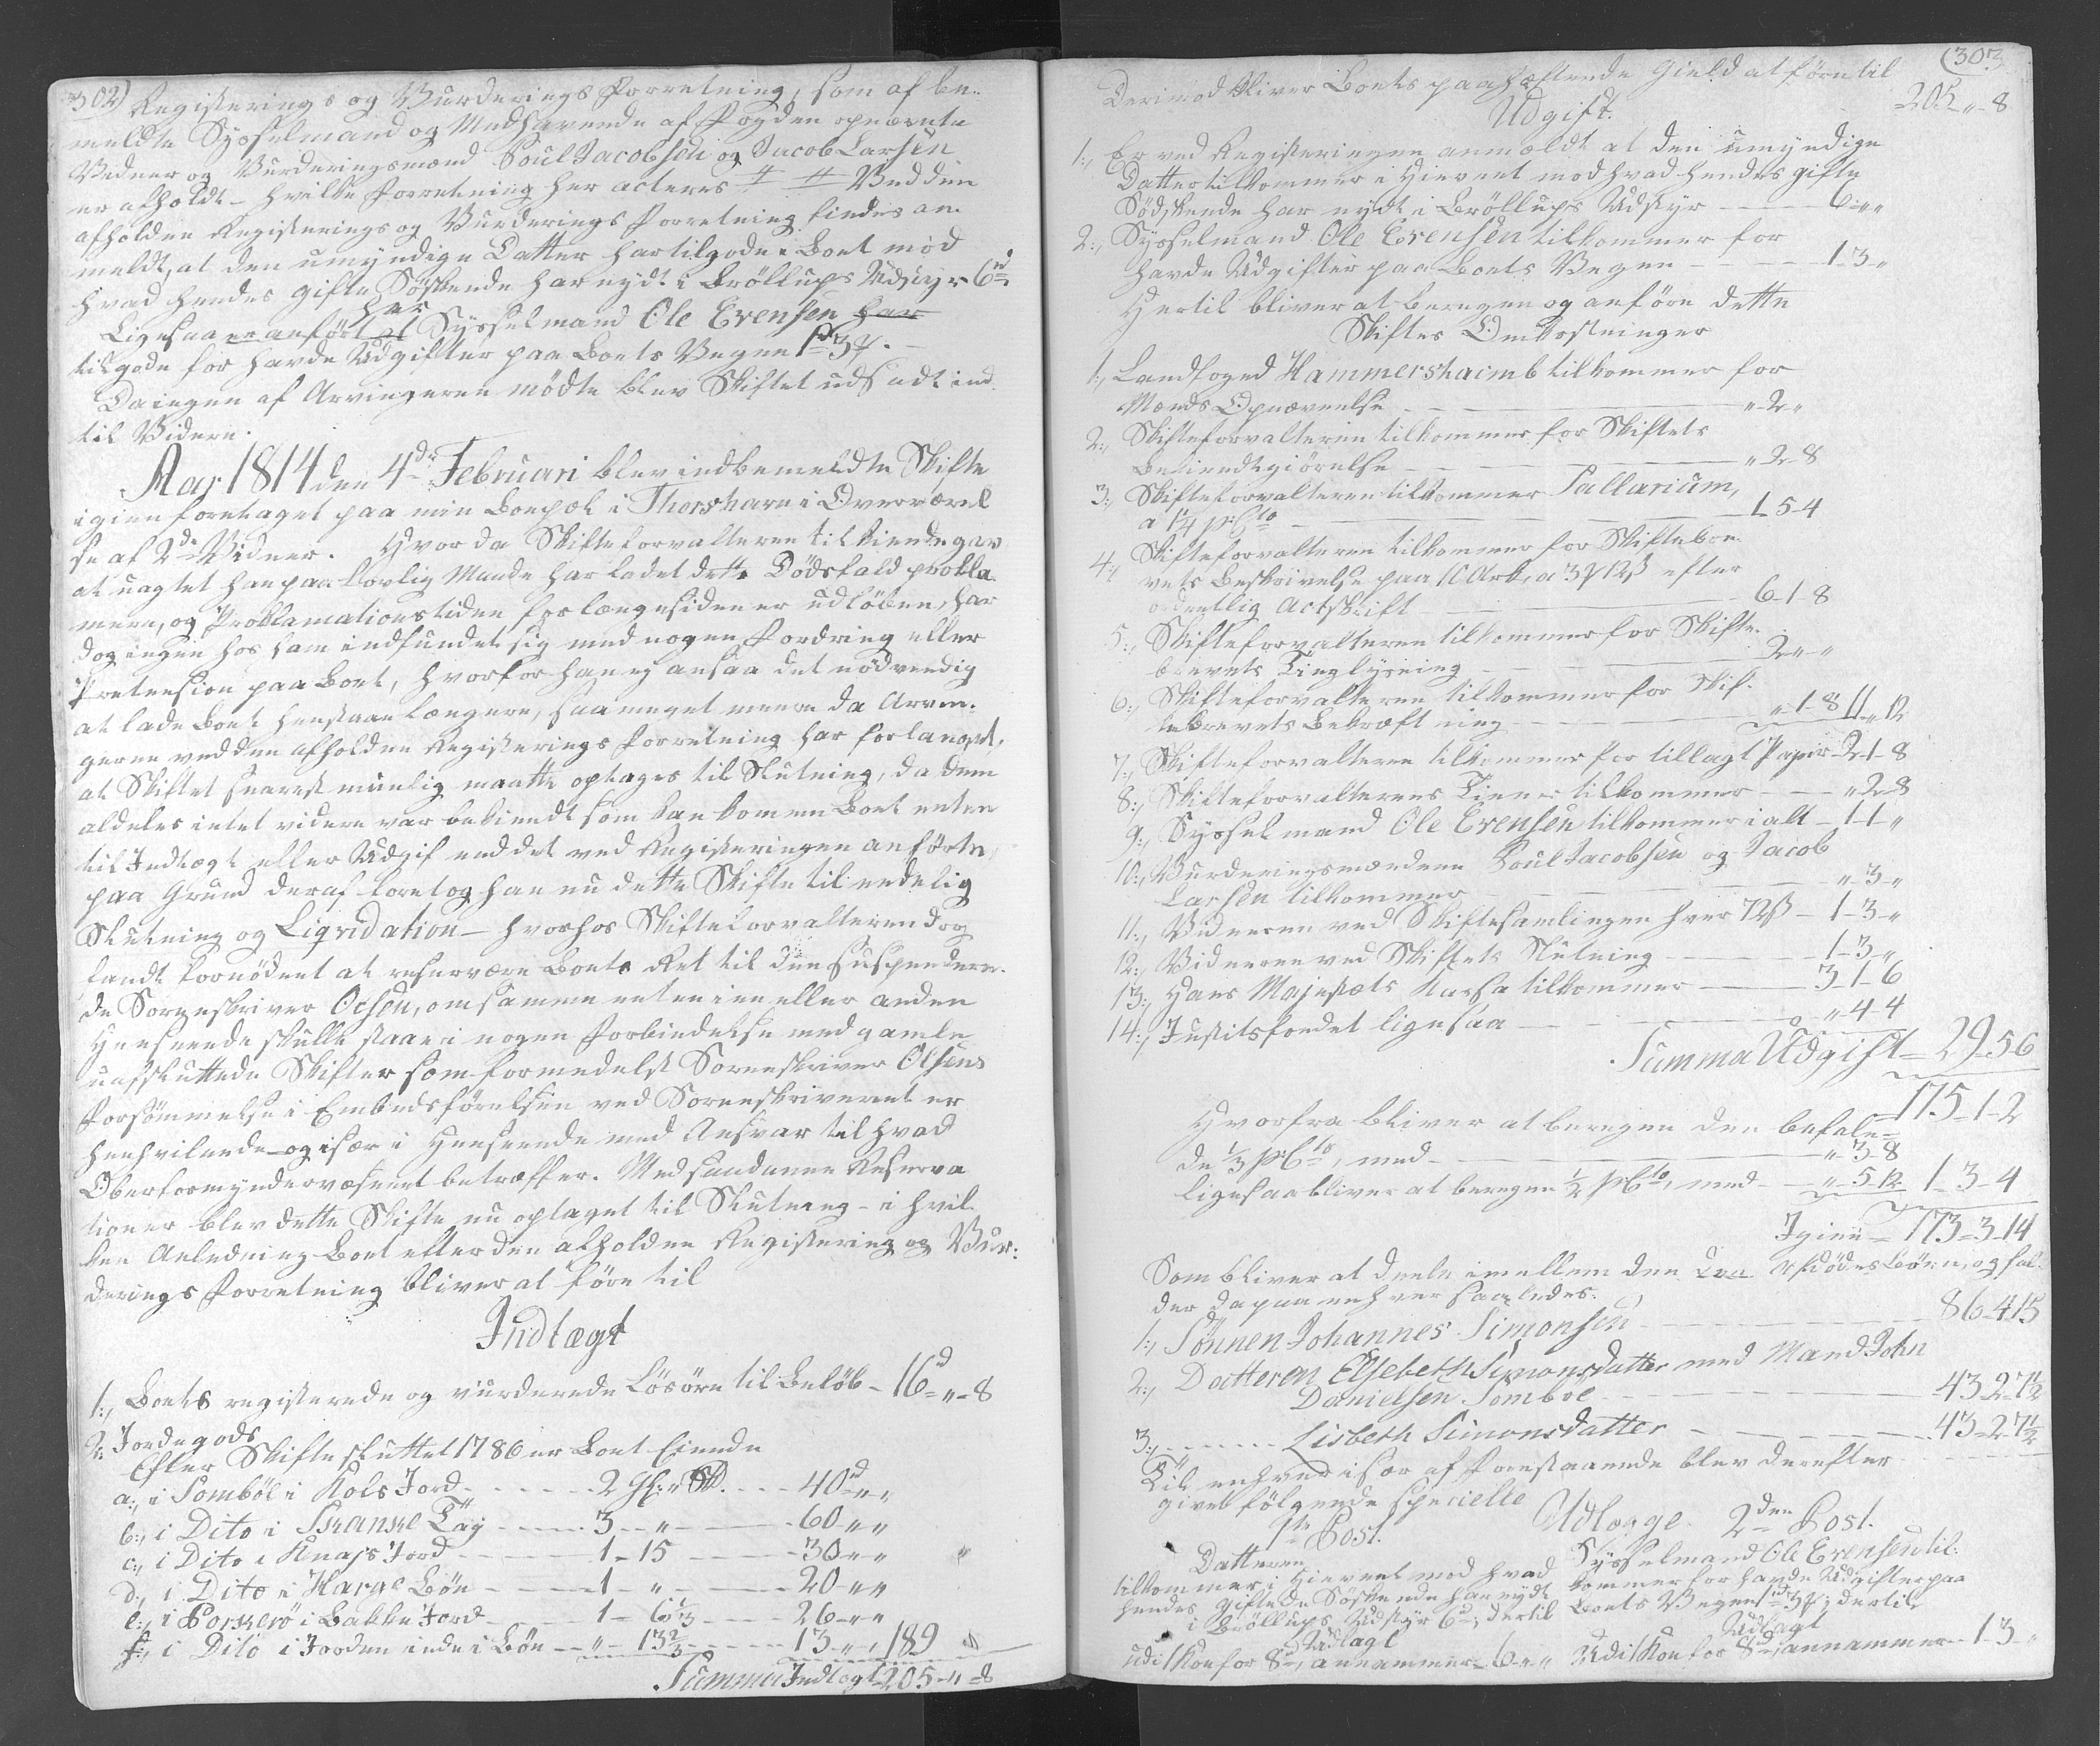 302)
Registerings og Vurderings Forretning, som af be-
meldte Sysselmand og Medhavende af Fogden opnævnte
Vidner og Vurderingsmænd Poul Jacobsen og Jacob Larsen
er afholdt - hvilke Forretning her acteres ╪ ╪ Ved den
afholdne Registerings og Vurderings Forretning findes an-
meldt, at den umyndige Datter har tilgode i Boet mod
hvad hendes gifte Søskende har nydt i Bröllups Udstyr 6rd
Ligesaa er anført at har Sysselmand Ole Evensen har
tilgode for havde Udgifter paa Boets Vegne 1rd 3 ß. -
Da ingen af Arvingerne mödte blev Skiftet udsadt ind-
til Videre.
Aar 1814 den 4de Februari blev indbemeldte Skifte
igien foretaget paa min Boepæl i Thorshavn i Overværel
se af 2de Vidner. Hvor da Skifteforvalteren tilkiendegav
at uagtet han paa lovlig Maade har ladet dette Dödsfald prokla-
mere, og Proklamationstiden for længesiden er udløben, har
dog ingen hos ham indfundet sig med nogen Fordring eller
Prætension paa Boet, hvorfor han ey ansaa det nødvendig
at lade Boet henstaae længere, saameget meere da Arvin-
gerne ved den afholdne Registerings Forretning har forlanget,
at Skiftet snarest muelig maatte optages til Slutning, da dem
aldeles intet videre var bekiendt som kan komme Boet enten
til Indtægt eller Udgif end det ved Registeringen anførte,
paa Grund deraf foretog han nu dette Skifte til endelig
Slutning og Liqvidation - hvorhos Skifteforvalteren dog
fandt fornødent at reservere Boets Ret til den suspendere-
de Sorenskriver Olsen, om samme enten i en eller anden
Henseende skulle staae i nogen Forbindelse med gamle
uafsluttede Skifter som formedelst Sorenskriver Olsens
Forsømmelse i Embedsførelsen ved Sorenskriveriet er
henhvilende - og især i Henseende med Ansvar til hvad
Oberformyndervæsenet betræffer. Med saadanne Reserva
tioner blev dette Skifte nu optaget til Slutning - i hvil-
ken Anledning Boet efter den afholdne Registering og Vur:
derings Forretning bliver at føre til
Indtægt
1:, Boets registerede og vurderede Lösöre til Beløb - 16d " - 8
2: Jordegods
Efter Skifte sluttet 1786 er Boet Eiende
a:, i Sombøe i Kols Jord - - - - 2 Gl: " Sk. - - - 40rd " "
b:, i Dito i Skanke Tåy - - - - 3 - " - - - 60 - " "
c:, i Dito i Knaps Jord - - - - 1 - 15 - - - 30 - " "
d:, i Dito i Harge Bøe - - - - 1 - " - - - 20 - " "
e:, i Porkerö i Bakke Jord - - - 1 - 6 1/3 - - - 26 - " "
f:, i Dito i Jorden inde i Bøe - - " - 13 2/3 - - - 13 - " , 189
Summa Indtægt 205 - " - 8
(303
Derimod bliver Boets paahæftende Gield at føre til
Udgift. 205 - " - 8
1:, Er ved Registeringen anmældt at den umyndige
Datter tilkommer i Hiemet mod hvad hendes gifte
Sødskende har nydt i Bröllups Udstyr - - - 6 " "
2:, Sysselmand Ole Evensen tilkommer for
havde Udgifter paa Boets Vegne - - - 1 - 3 - "
Hertil bliver at beregne og anføre dette
Skiftes Omkostninger
1:, Landfoged Hammershaimb tilkommer for
Mænds Opnævnelse - - - " - 2 - "
2:, Skifteforvalteren tilkommer for Skiftets
Bekiendtgiörelse - - - " 2 - 8
3:, Skifteforvalteren tilkommer Sallarium,
a 1 1/4 pCto - - - 1 - 5 - 4
4:, Skifteforvalteren tilkommer for Skiftebre-
vets Beskrivelse paa 10 Ark, a 3 ß 12 ß efter
ordentlig Actskrift - - - 6 - 1 - 8
5:, Skifteforvalteren tilkommer for Skifte-
brevets Tinglysning - - - 2 - " - "
6:, Skifteforvalteren tilkommer for Skif-
tebrevets Bekræftning - - - " - 1 - 8 11 " 12
7:, Skifteforvalteren tilkommer for tillagt Papir - 2 - 1 - 8
8:, Skifteforvalterens Tiener tilkommer - - - " 2 - 8
9:, Sysselmand Ole Evensen tilkommer i alt - 1 - 1 - "
10:, Vurderingsmændene Poul Jacobsen og Jacob
Larsen tilkommer - - - " - 3 - "
11:, Vidnerne ved Skiftesamlingen hver 72ß - 1 - 3 - "
12:, Vidnerne ved Skiftets Slutning - - - 1 - 3 - "
13:, Hans Majestæts Kasse tilkommer - - - 3 - 1 - 6
14:, Justitsfondet ligesaa - - - " 4 - 4
Summa Udgift - 29 - 5 - 6
175 - 1 - 2
Hvorfra bliver at beregne den befale-
de 1/3 pCto, med - - - " - 3 - 8
ligesaa bliver at beregne 1/2 pCto, med - - " - 5 - 12 1 - 3 - 4
Igien - 173 - 3 - 14
Som bliver at deele imellem den Afdødes Börn, og fal-
der da paa enhver saaledes:
1:, Sönnen Johannes Simonsen - - - 86 - 4 15
2:, Datteren Elsebeth Simonsdatter med Mand John
Danielsen Somboe - - - 43 - 2 - 7 1/2
3:, - - - Lisbeth Simonsdatter - - - 43 - 2 - 7 1/2
Til enhver især af Forestaaende blev derefter
givet følgende specielle
Udlæge.
1te Post.
Datteren
tilkommer i Hiemet mod hvad
hendes giftede Søskende har nydt
i Bröllups Udstyr 6d; dertil
Udlagt
udi 1 Koe for 8rd, annammer - 6 - " "
2den Post.
Sysselmand Ole Evensen til-
kommer for havde Udgifter paa
Boets Vegne 1rd 3ß; dertil
Udlagt
Udi 1 Koe for 8rd, annammer - 1 - 3 - "